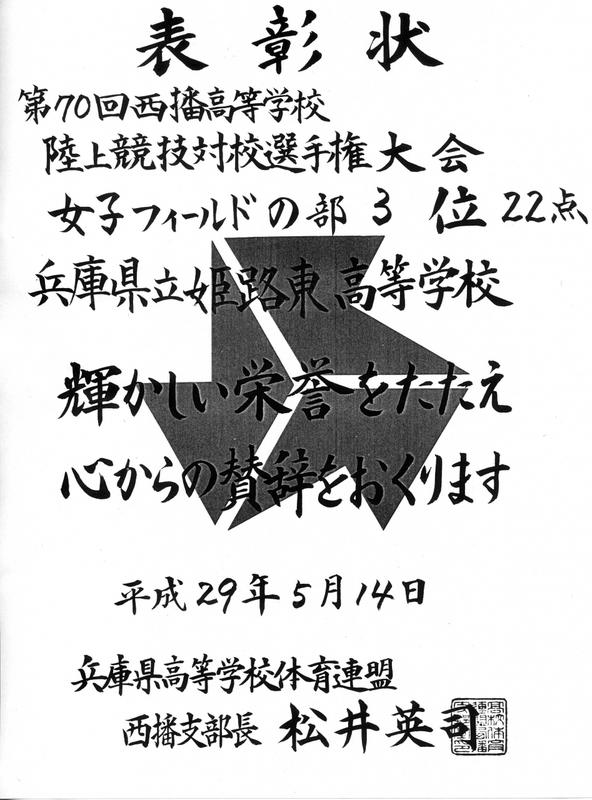 表彰状
第70回西播高等学校
陸上競技対校選手権大会
女子フィールドの部 3 位 22点
兵庫県立姫路東高等学校
輝かしい栄誉をたたえ
心からの賛辞をおくります
平成29年5月14日
兵庫県高等学校体育連盟
西播支部長 松井英司